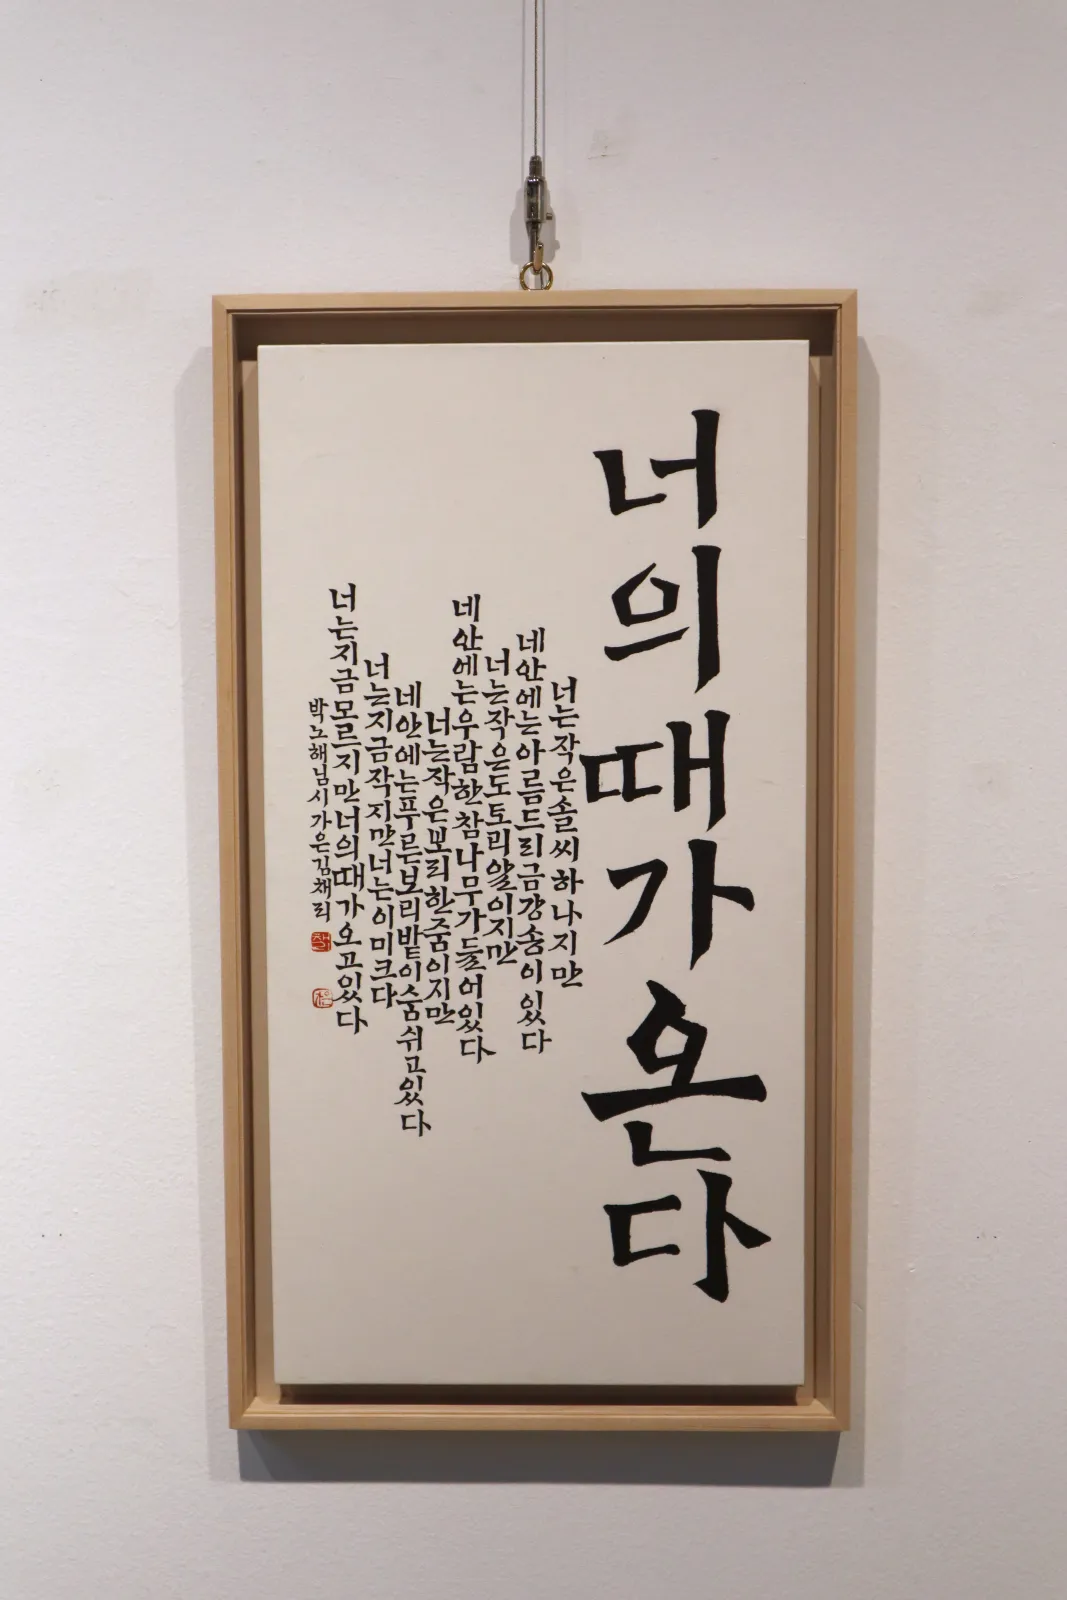 너의때가온다
너는작은솔씨하나지만
네안에는아름드리금강송이있다
너는작은도토리알이지만
네안에는우람한참나무가들어있다
너는작은보리한줌이지만
네안에는푸른보리밭이숨쉬고있다
너는지금작지만너는이미크다
너는지금모르지만너의때가오고있다
박노해님시가은김채리